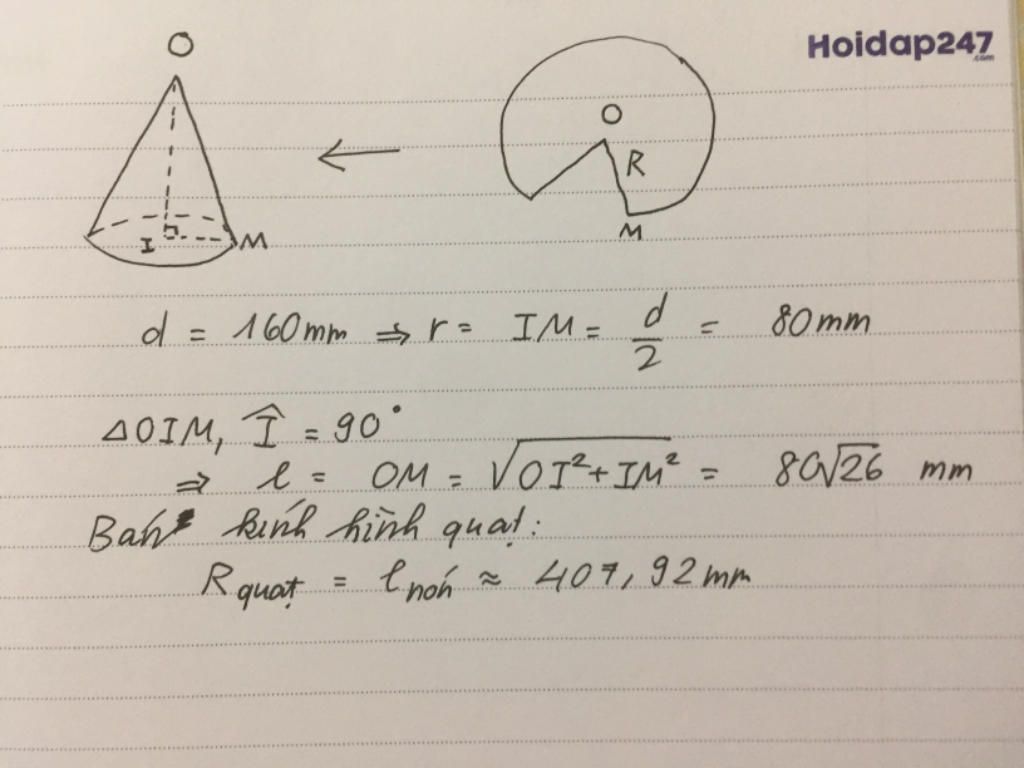 Hoidap247
.com
O
O
R
I
M
M
d = 160mm ⇒ r = IM = d/2 = 80mm
ΔOIM, Î = 90°
⇒ l = OM = √(OI²+IM²) = 80√26 mm
Bán kính hình quạt:
R quạt = l nón ≈ 407,92mm